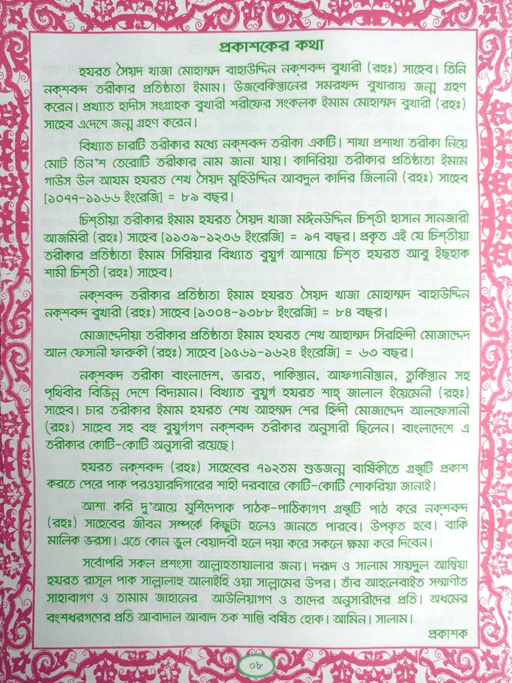 প্রকাশকের কথা
হযরত সৈয়দ খাজা মোহাম্মদ বাহাউদ্দিন নক্শবন্দ বুখারী (রহঃ) সাহেব। তিনি
নক্শবন্দ তরীকার প্রতিষ্ঠাতা ইমাম। উজবেকিস্তানের সমরখন্দ বুখারায় জন্ম গ্রহণ
করেন। প্রখ্যাত হাদীস সংগ্রাহক বুখারী শরীফের সংকলক ইমাম মোহাম্মদ বুখারী (রহঃ)
সাহেব এদেশে জন্ম গ্রহণ করেন।
বিখ্যাত চারটি তরীকার মধ্যে নক্শবন্দ তরীকা একটি। শাখা প্রশাখা তরীকা নিয়ে
মোট তিন'শ তেরোটি তরীকার নাম জানা যায়। কাদিরিয়া তরীকার প্রতিষ্ঠাতা ইমাম
গাউস উল আযম হযরত শেখ সৈয়দ মুহিউদ্দিন আবদুল কাদির জিলানী (রহঃ) সাহেব
[১০৭৭-১১৬৬ ইংরেজি] = ৮৯ বছর।
চিশ্তীয়া তরীকার ইমাম হযরত সৈয়দ খাজা মঈনউদ্দিন চিশ্তী হাসান সানজারী
আজমিরী (রহঃ) সাহেব [১১৩৯-১২৩৬ ইংরেজি] = ৯৭ বছর। প্রকৃত এই যে চিশ্তীয়া
তরীকার প্রতিষ্ঠাতা ইমাম সিরিয়ার বিখ্যাত বুযুর্গ আশায়ে চিশ্ত হযরত আবু ইছহাক
শামী চিশ্তী (রহঃ) সাহেব।
নক্শবন্দ তরীকার প্রতিষ্ঠাতা ইমাম হযরত সৈয়দ খাজা মোহাম্মদ বাহাউদ্দিন
নক্শবন্দ বুখারী (রহঃ) সাহেব [১৩০৪-১৩৮৮ ইংরেজি] = ৮৪ বছর।
মোজাদ্দেদীয়া তরীকার প্রতিষ্ঠাতা ইমাম হযরত শেখ আহাম্মদ সিরহিন্দী মোজাদ্দেদ
আল ফেসানী ফারুকী (রহঃ) সাহেব [১৫৬১-১৬২৪ ইংরেজি] = ৬৩ বছর।
নক্শবন্দ তরীকা বাংলাদেশ, ভারত, পাকিস্তান, আফগানীস্তান, তুর্কিস্তান সহ
পৃথিবীর বিভিন্ন দেশে বিদ্যমান। বিখ্যাত বুযুর্গ হযরত শাহ্ জালাল ইয়েমেনী (রহঃ)
সাহেব। চার তরীকার ইমাম হযরত শেখ আহম্মদ শের হিন্দী মোজাদ্দেদ আলফেসানী
(রহঃ) সাহেব সহ বহু বুযুর্গগণ নক্শবন্দ তরীকার অনুসারী ছিলেন। বাংলাদেশে এ
তরীকার কোটি-কোটি অনুসারী রয়েছে।
হযরত নক্শবন্দ (রহঃ) সাহেবের ৭১২তম শুভজন্ম বার্ষিকীতে গ্রন্থটি প্রকাশ
করতে পেরে পাক পরওয়ারদিগারের শাহী দরবারে কোটি-কোটি শোকরিয়া জানাই।
আশা করি দু'আয়ে মুর্শিদেপাক পাঠক-পাঠিকাগণ গ্রন্থটি পাঠ করে নক্শবন্দ
(রহঃ) সাহেবের জীবন সম্পর্কে কিছুটা হলেও জানতে পারবে। উপকৃত হবে। বাকি
মালিক ভরসা। এতে কোন ভুল বেয়াদবী হলে দয়া করে সকলে ক্ষমা করে দিবেন।
সর্বোপরি সকল প্রশংসা আল্লাহতায়ালার জন্য। দরূদ ও সালাম সায়্যদুল আম্বিয়া
হযরত রাসূল পাক সাল্লালাহু আলাইহি ওয়া সাল্লামের উপর। তাঁর আহলেবাইত সম্মাণীত
সাহাবাগণ ও তামাম জাহানের আউলিয়াগণ ও তাদের অনুসারীদের প্রতি। অধমের
বংশধরগণের প্রতি আবাদাল আবাদ তক শান্তি বর্ষিত হোক। আমিন। সালাম।
প্রকাশক
০৮